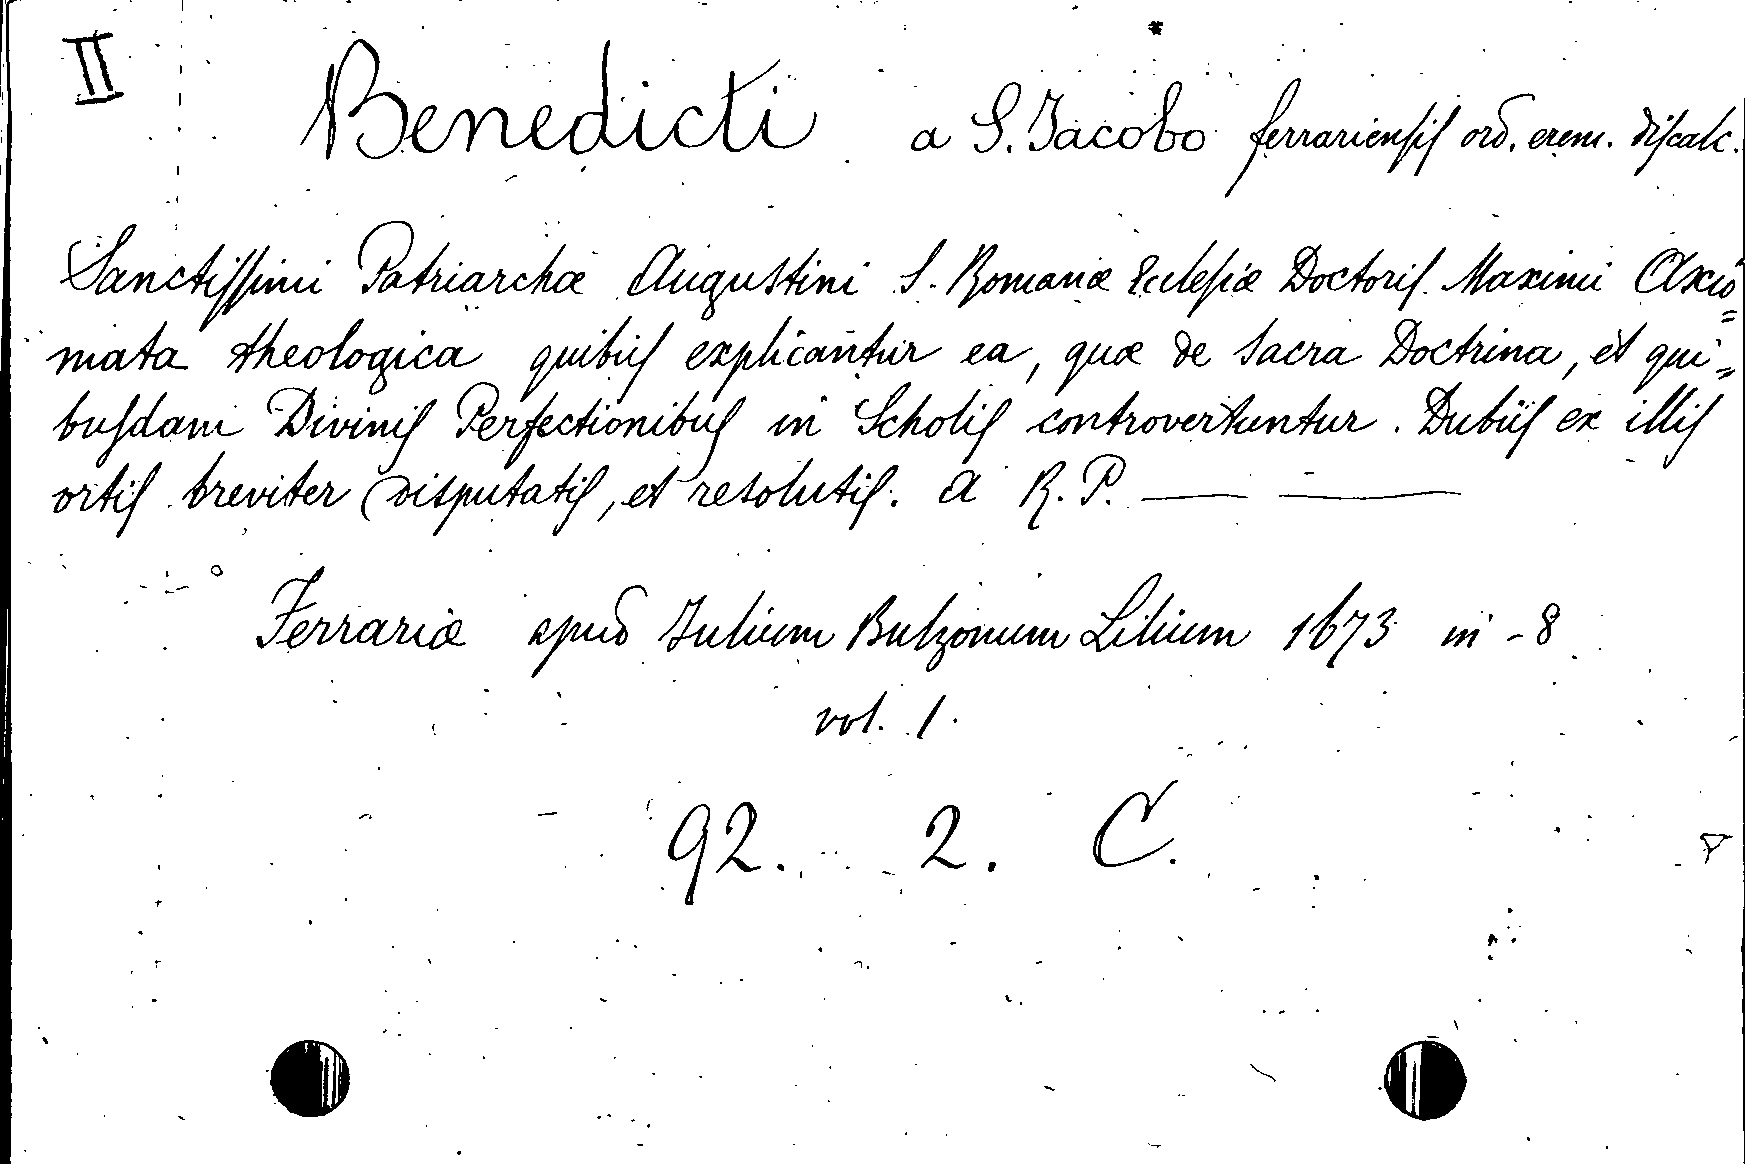 II
Benedicti a S. Jacobo ferrariensis ord. erem. discalc.
Sanctissimi Patriarchæ Augustini S. Romanæ Eclesiæ Doctoris Maximi Axio=
mata theologica quibus explicantur ea, quæ de sacra Doctrina, et qui=
busdam Divinis Perfectionibus in Scholis controvertuntur. Dubiis ex illis
ortis breviter disputatis, et resolutis. A R. P. — —
Ferrariæ apud Julium Bulzonum Lilium 1673 in-8
vol. 1.
92. 2. C.